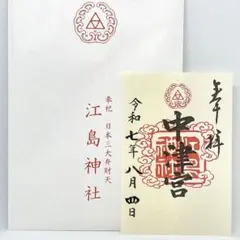 奉祀 日本三大弁財天
江島神社
奉拝
中津宮
令和七年八月四日